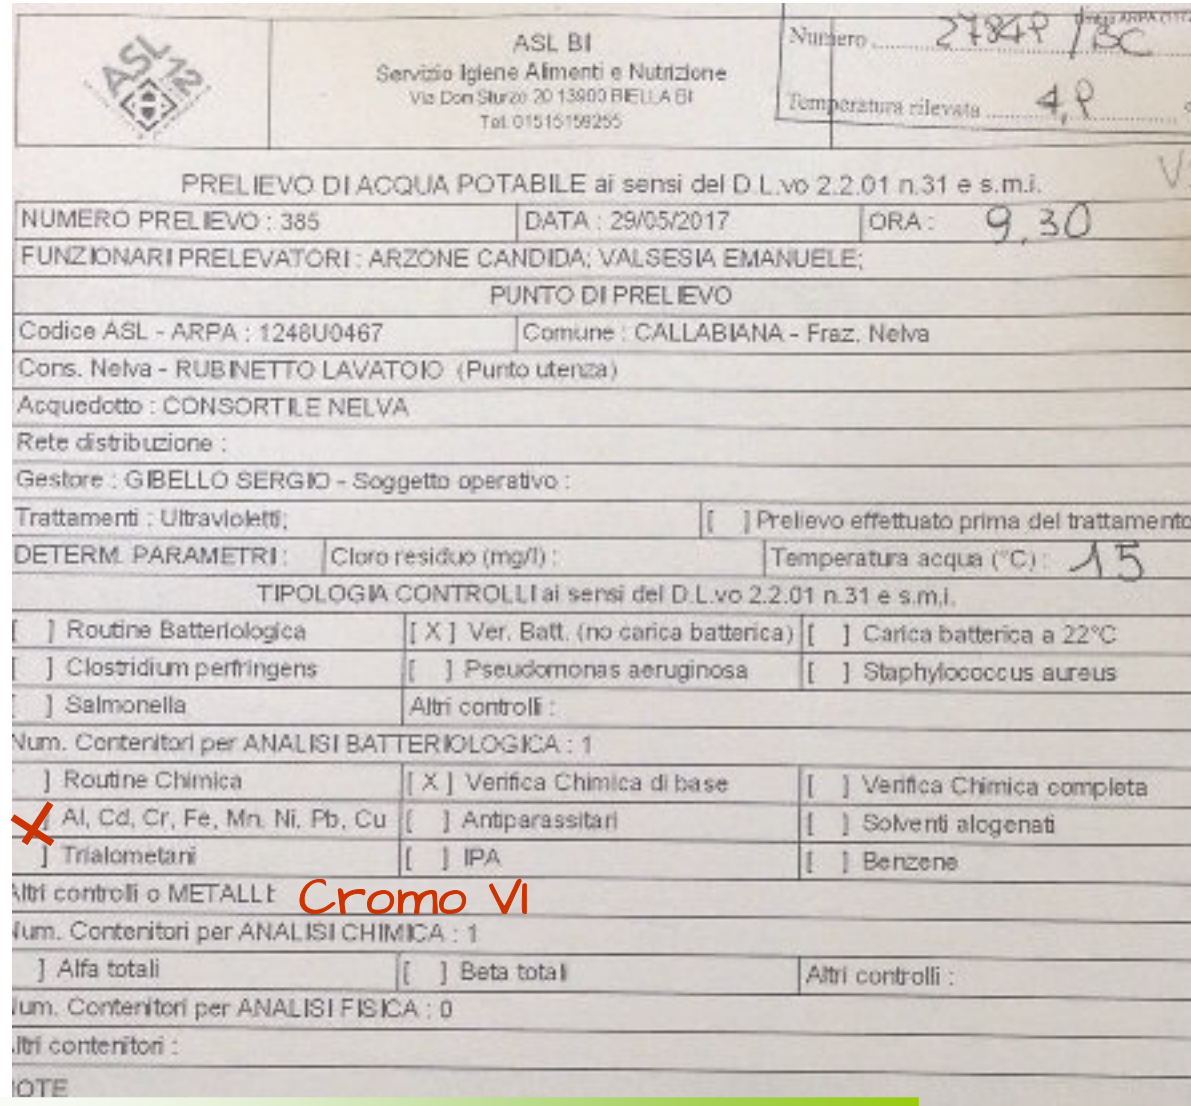 ASL 12
ASL BI
Servizio Igiene Alimenti e Nutrizione
Via Don Sturzo 20 13900 BIELLA BI
Tel. 01515159255
Numero
Temperatura rilevata 4,
PRELIEVO DI ACQUA POTABILE ai sensi del D.L.vo 2.2.01 n.31 e s.m.i.
NUMERO PRELIEVO : 385 DATA : 29/05/2017 ORA : 9,30
FUNZIONARI PRELEVATORI : ARZONE CANDIDA; VALSESIA EMANUELE;
PUNTO DI PRELIEVO
Codice ASL - ARPA : 1248U0467 Comune : CALLABIANA - Fraz. Nelva
Cons. Nelva - RUBINETTO LAVATOIO (Punto utenza)
Acquedotto : CONSORTILE NELVA
Rete distribuzione :
Gestore : GIBELLO SERGIO - Soggetto operativo :
Trattamenti : Ultravioletti; [ ] Prelievo effettuato prima del trattamento
DETERM. PARAMETRI : Cloro residuo (mg/l) : Temperatura acqua (°C) : 15
TIPOLOGIA CONTROLLI ai sensi del D.L.vo 2.2.01 n.31 e s.m.i.
[ ] Routine Batteriologica [ X ] Ver. Batt. (no carica batterica) [ ] Carica batterica a 22°C
[ ] Clostridium perfringens [ ] Pseudomonas aeruginosa [ ] Staphylococcus aureus
[ ] Salmonella Altri controlli :
Num. Contenitori per ANALISI BATTERIOLOGICA : 1
] Routine Chimica [ X ] Verifica Chimica di base [ ] Verifica Chimica completa
X ] Al, Cd, Cr, Fe, Mn. Ni. Pb, Cu [ ] Antiparassitari [ ] Solventi alogenati
] Trialometani [ ] IPA [ ] Benzene
Altri controlli o METALLI: Cromo VI
Num. Contenitori per ANALISI CHIMICA : 1
] Alfa totali [ ] Beta totali Altri controlli :
um. Contenitori per ANALISI FISICA : 0
ltri contenitori :
OTE